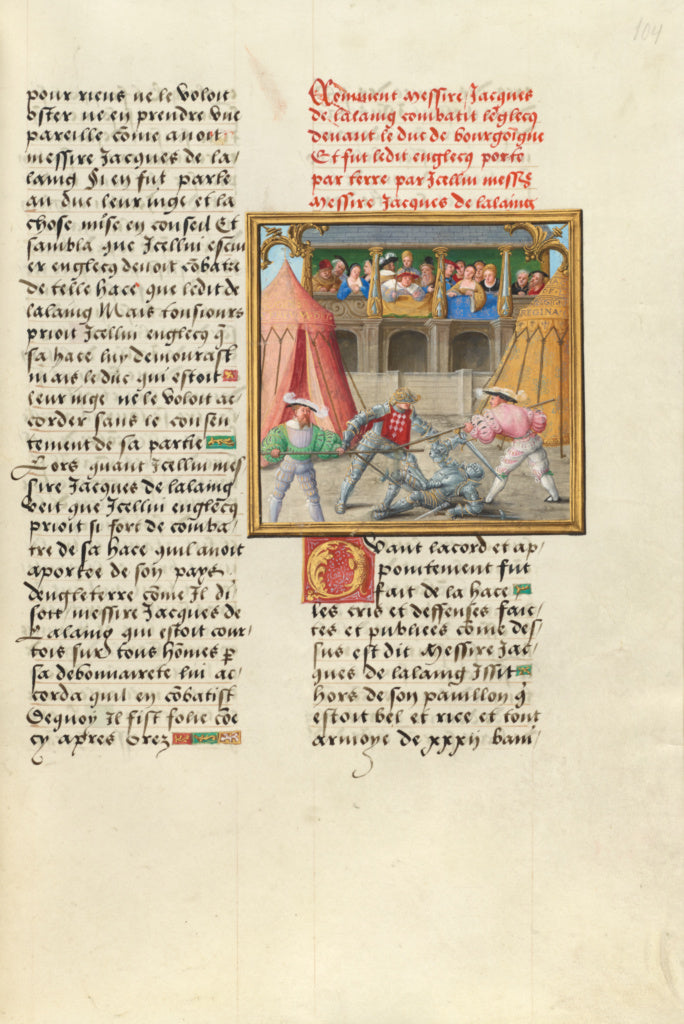 104
pour riens ne le voloit
oster ne en prendre une
pareille cōme avoit
messire Jacques de la/
laing Si en fut parle
au duc leur iuge et la
chose mise en conseil Et
sambla que Jcellui escui/
er englecq devoit cōbatre
de telle hace que ledit de
lalaing Mais tousiours
prioit Jcellui englecq q̄
sa hace luy demourast
mais le duc qui estoit
leur iuge ne le voloit ac/
corder sans le consen/
tement de sa partie
Lors quant Jcellui mes/
sire Jacques de lalaing
veit que Jcellui englecq
prioit si fort de comba/
tre de sa hace quil avoit
aportee de son pays
dengleterre cōme Il di/
soit messire Jacques de
Lalaing qui estoit cour/
tois sur tous hōmes p̄
sa debonnairete lui ac/
corda quil en cōbatist
Dequoy Il fist folie cōe
cy apres Orez
Comment Messire Jacques
de lalaing combatit leglecq
devant le duc de bourgoigne
Et fut ledit englecq porte
par terre par Jcellui messe
Messire Jacques de lalaing
REGINA
Avant lacord et ap/
pointement fut
fait de la hace
les cris et deffenses faic/
tes et publiees cōme des/
sus est dit Messire Jac/
ques de lalaing Issit
hors de son pavillon q̄
estoit bel et rice et tout
armoye de xxxij bani/